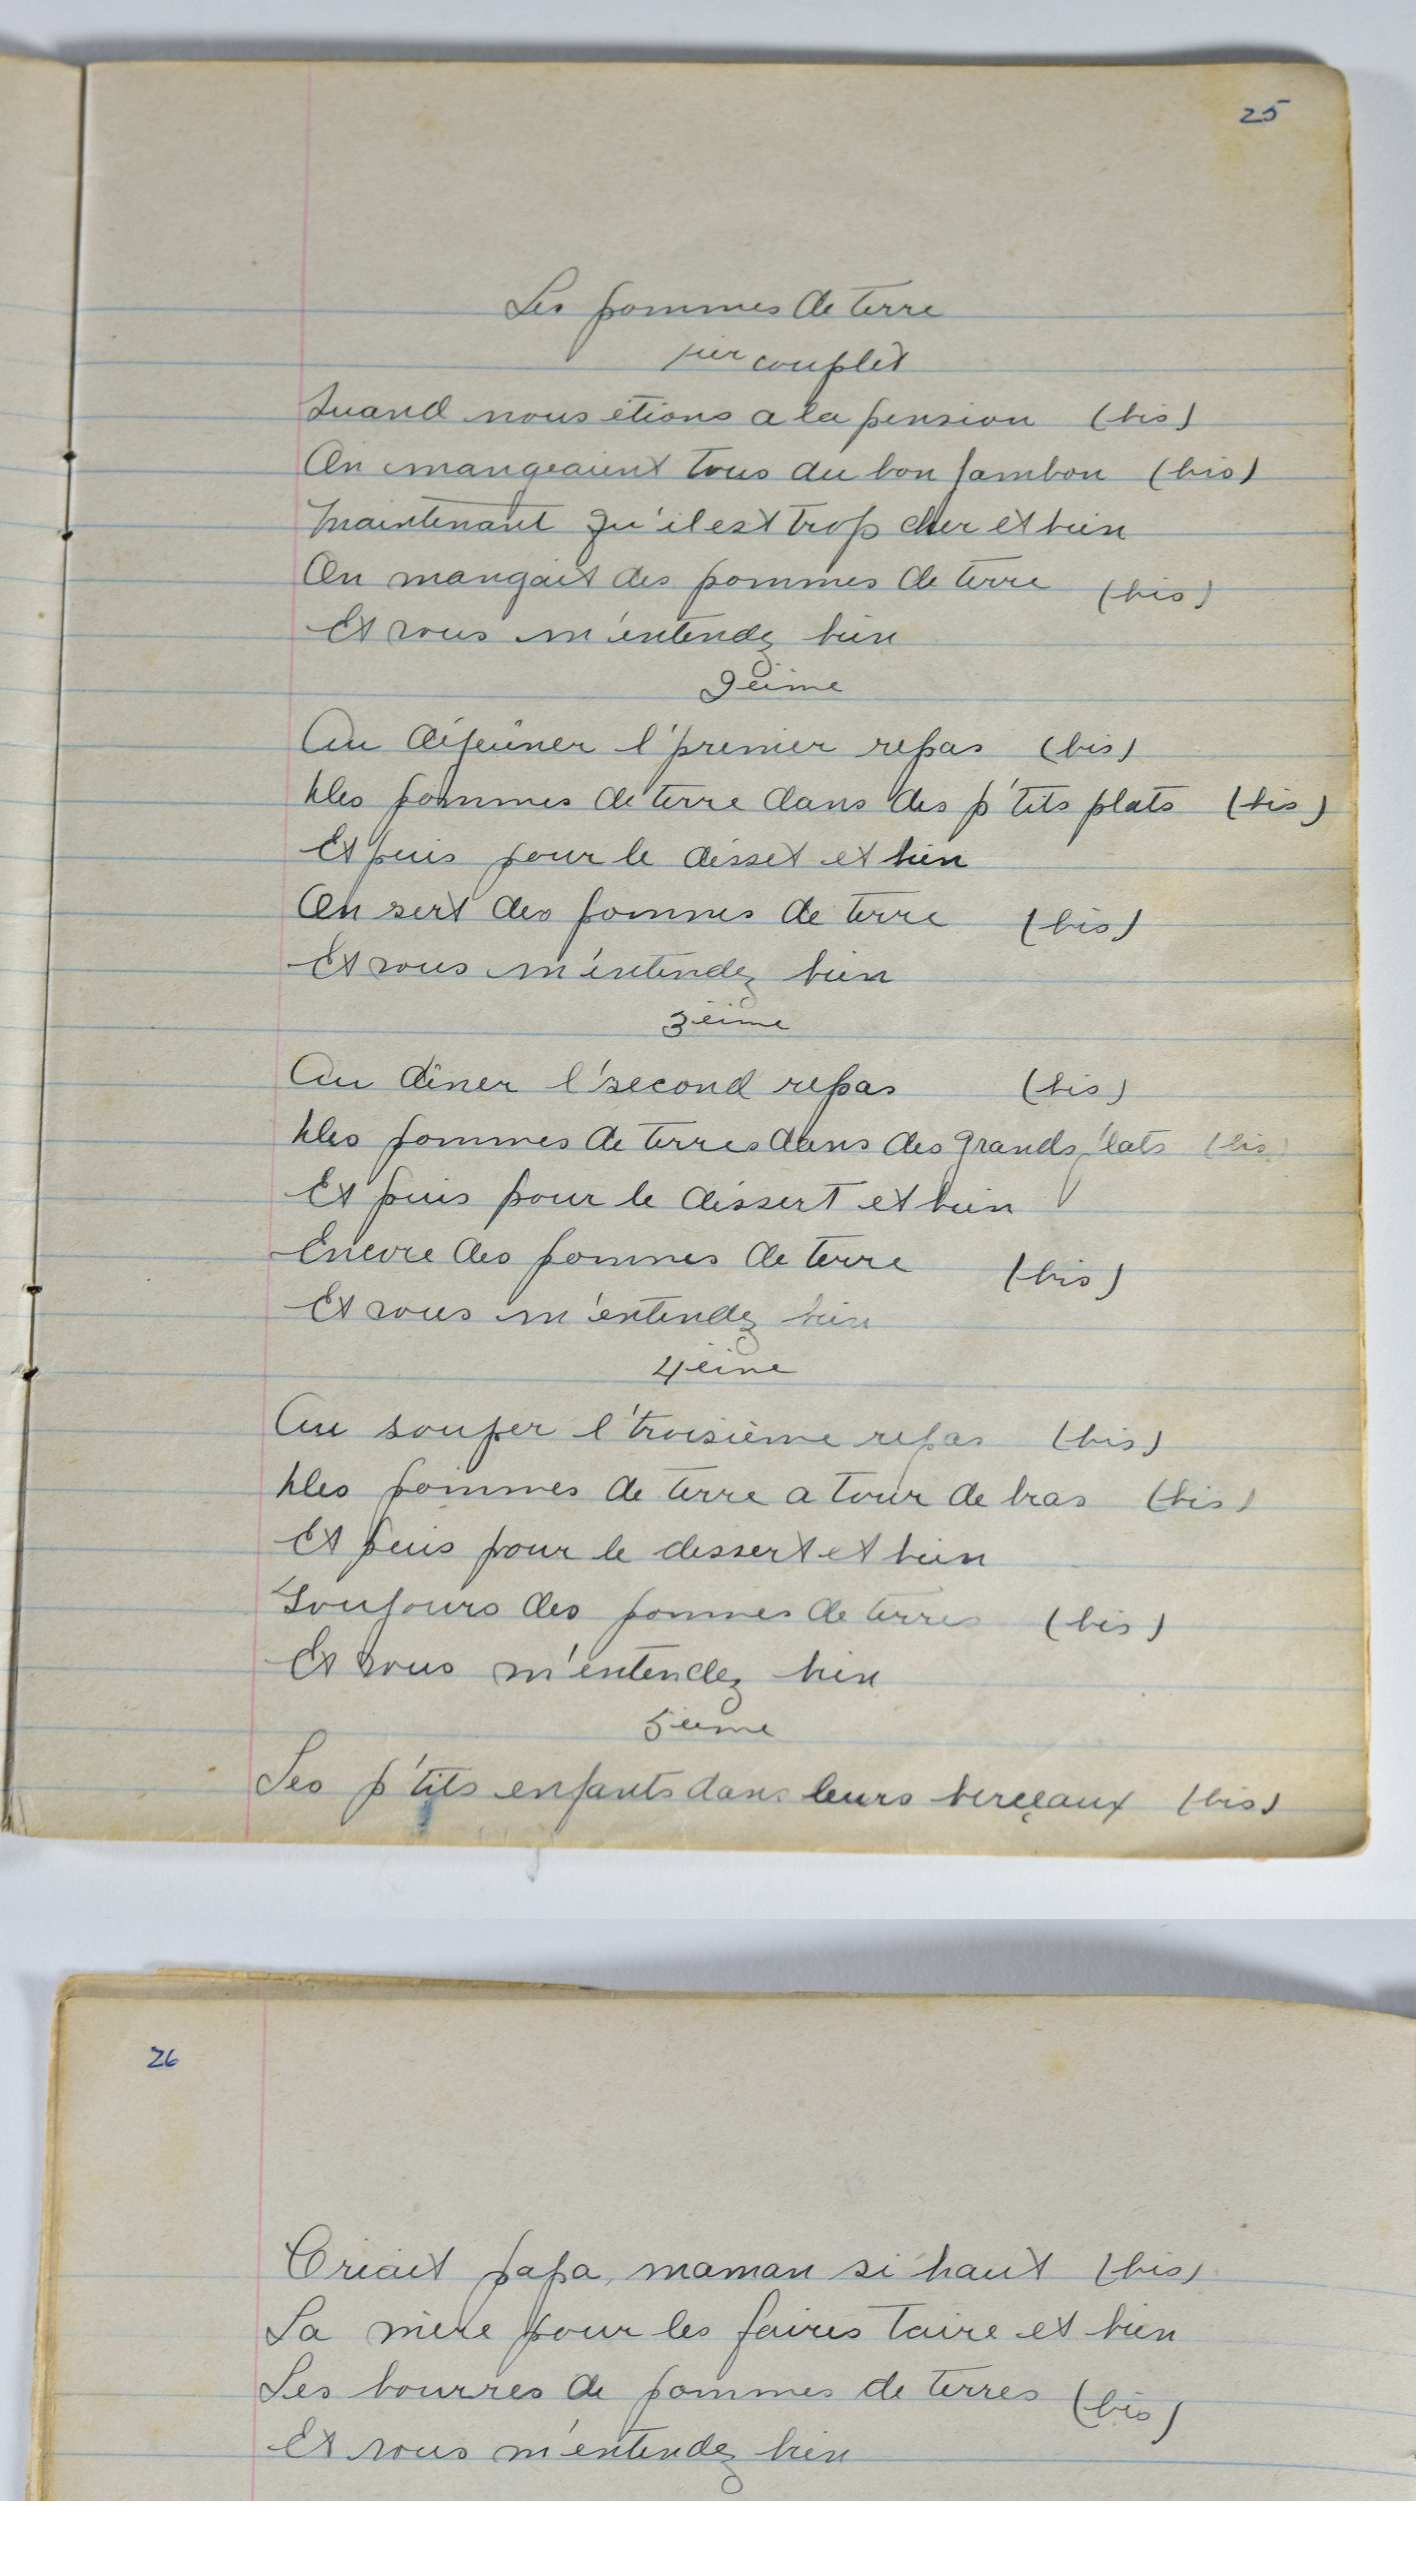 25
Les pommes de terre
1ier couplet
Quand nous étions a la pension (bis)
On mangeaient tous du bon jambon (bis)
Maintenant qu'il est trop cher et bien
On mangait des pommes de terre (bis)
Et vous m'entendez bien
2eime
Au déjeûner l'premier repas (bis)
Des pommes de terre dans des p'tits plats (bis)
Et puis pour le désset et bien
On sert des pommes de terre (bis)
Et vous m'entendez bien
3eime
Au dîner l'second repas (bis)
Des pommes de terres dans des grands plats (bis)
Et puis pour le dessert et bien
Encore des pommes de terre (bis)
Et vous m'entendez bien
4eime
Au souper l'troisième repas (bis)
Des pommes de terre a tour de bras (bis)
Et puis pour le dessert et bien
Toujours des pommes de terres (bis)
Et vous m'entendez bien
5eime
Les p'tits enfants dans leurs berçeaux (bis)
26
Criait papa, maman si haut (bis)
La mère pour les faires taire et bien
Les bourres de pommes de terres (bis)
Et vous m'entendez bien